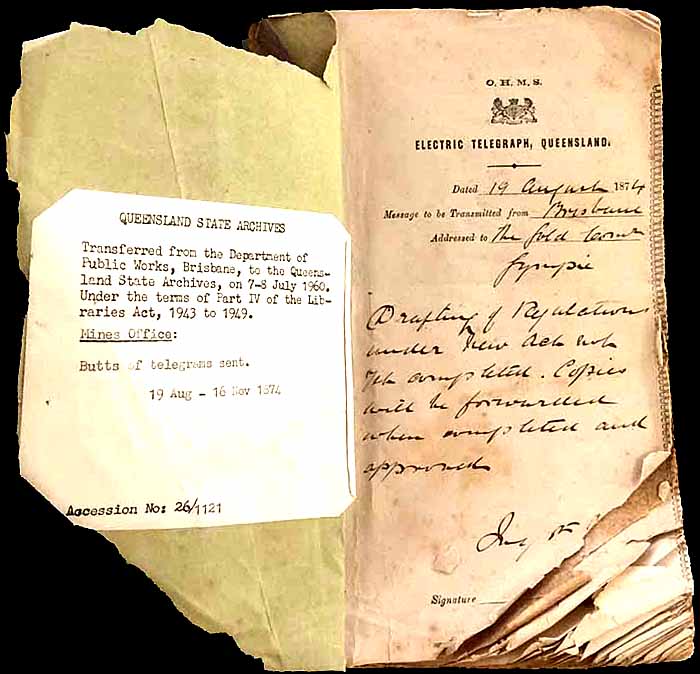 QUEENSLAND STATE ARCHIVES
Transferred from the Department of
Public Works, Brisbane, to the Queens-
land State Archives, on 7-8 July 1960.
Under the terms of Part IV of the Lib-
raries Act, 1943 to 1949.
Mines Office:
Butts of telegrams sent.
19 Aug - 16 Nov 1874
Accession No: 26/1121
O. H. M. S.
ELECTRIC TELEGRAPH, QUEENSLAND.
Dated 19 August 1874
Message to be Transmitted from Brisbane
Addressed to The Gold Comr
Gympie
Drafting of Regulations
under new Act not
yet completed. Copies
will be forwarded
when completed and
approved
Signature